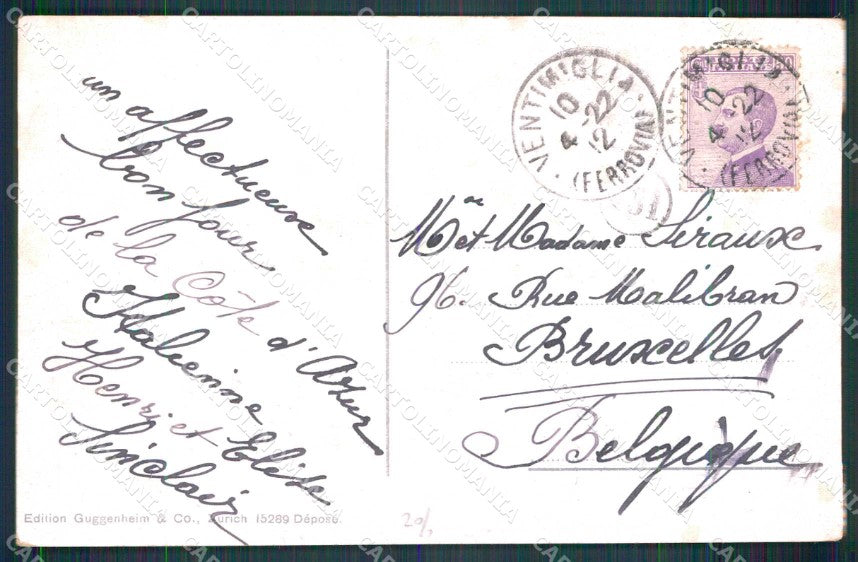 un affectueuse
bonjour
de la Côte d'Azur
Italienne
Henri et Elise
Sinclair
Edition Guggenheim & Co., Zürich 15289 Déposé.
20/.
VENTIMIGLIA
10
4 22
12
(FERROVIA)
VENTIMIGLIA
10
4 22
12
(FERROVIA)
50 50
Mr et Madame Siraux
96. Rue Malibran
Bruxelles
Belgique
CARTOLINOMANIA